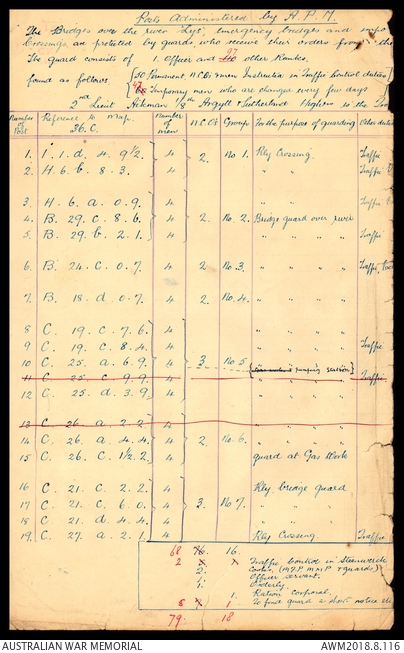 Posts Administered by A.P.M.
The Bridges over the river "Lys", emergency bridges and impo
Crossings are protected by guards, who receive their orders from the
The guard consists of 1 Officer and 97 110 other Ranks.
found as follows {30 Permanent N.C.O's & men Instructed in Traffic Control duties}
Temporary men who are changed every few days
2nd Lieut Aikman 1/8th Argyll & Sutherland Highrs is the
Number of Post Reference to Map. 36.C. Number of men N.C.Os Group For the purpose of guarding Other duties
1. I. 1. d. 4. 9½. 4 2. No 1. Rly Crossing. Traffic
2. H. 6. b. 8. 3. 4 " " " " Traffic
3. H. 6. a. 0. 9. 4 " " " "
4. B. 29. c. 8. 6. 4 2. No. 2. Bridge guard over river
5. B. 29. b. 2. 1. 4 " " " " Traffic
6. B. 24. c. 0. 7. 4 2. No 3. " " " " Traffic,
7. B. 18. d. 0. 7. 4 2. No. 4. " " " "
8 C. 19. c. 7. 6. 4 " " " "
9 C. 19. c. 8. 4. 4 " " " " Traffic
10 C. 25. a. 6. 9. 4 3. No 5. " " " "
11 C. 25. c. 9. 9. 4 pumping station Traffic
12 C. 25. d. 3. 9. 4 " " " "
13 C. 26. a. 2. 2. 4 " " " "
14 C. 26. a. 4. 4. 4 2. No. 6. " " " "
15 C. 26. C. 1½. 2. 4 guard at Gas Work
16 C. 21. C. 2. 2. 4 Rly bridge guard
17 C. 21. C. 6. 0. 4 3. No 7. " " " "
18 C. 21. d. 4. 4. 4 " " " "
19. C. 27. a. 2. 1. 4 Rly Crossing. Traffic
68 76. 16.
2 Traffic Control in Steenwerck
2. Cooks, (M.F.P. M.M.P. & guards)
1. Officer servant.
1. Orderly.
1. Ration Corporal.
5 1. To find guard a short notice
79. 18
AUSTRALIAN WAR MEMORIAL
AWM2018.8.116